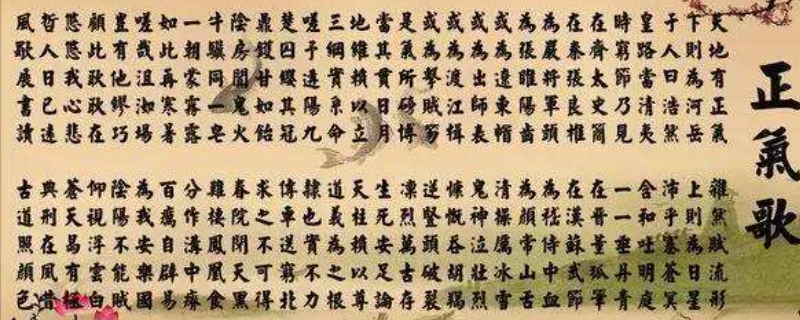 正氣歌
天地有正氣 雜然賦流形
下則為河岳 上則為日星
于人曰浩然 沛乎塞蒼冥
皇路當清夷 含和吐明庭
時窮節乃見 一一垂丹青
在齊太史簡 在晉董狐筆
在秦張良椎 在漢蘇武節
為嚴將軍頭 為嵇侍中血
為張睢陽齒 為顏常山舌
或為遼東帽 清操厲冰雪
或為出師表 鬼神泣壯烈
或為渡江楫 慷慨吞胡羯
或為擊賊笏 逆豎頭破裂
是氣所磅博 凜烈萬古存
當其貫日月 生死安足論
地維賴以立 天柱賴以尊
三綱實系命 道義為之根
嗟予遘陽九 隸也實不力
楚囚纓其冠 傳車送窮北
鼎鑊甘如飴 求之不可得
陰房闃鬼火 春院閉天黑
牛驥同一皂 雞棲鳳凰食
一朝蒙霧露 分作溝中瘠
如此再寒暑 百癘自辟易
嗟哉沮洳場 為我安樂國
豈有他繆巧 陰陽不能賊
顧此耿耿在 仰視浮雲白
悠悠我心悲 蒼天曷有極
哲人日已遠 典刑在夙昔
風檐展書讀 古道照顏色